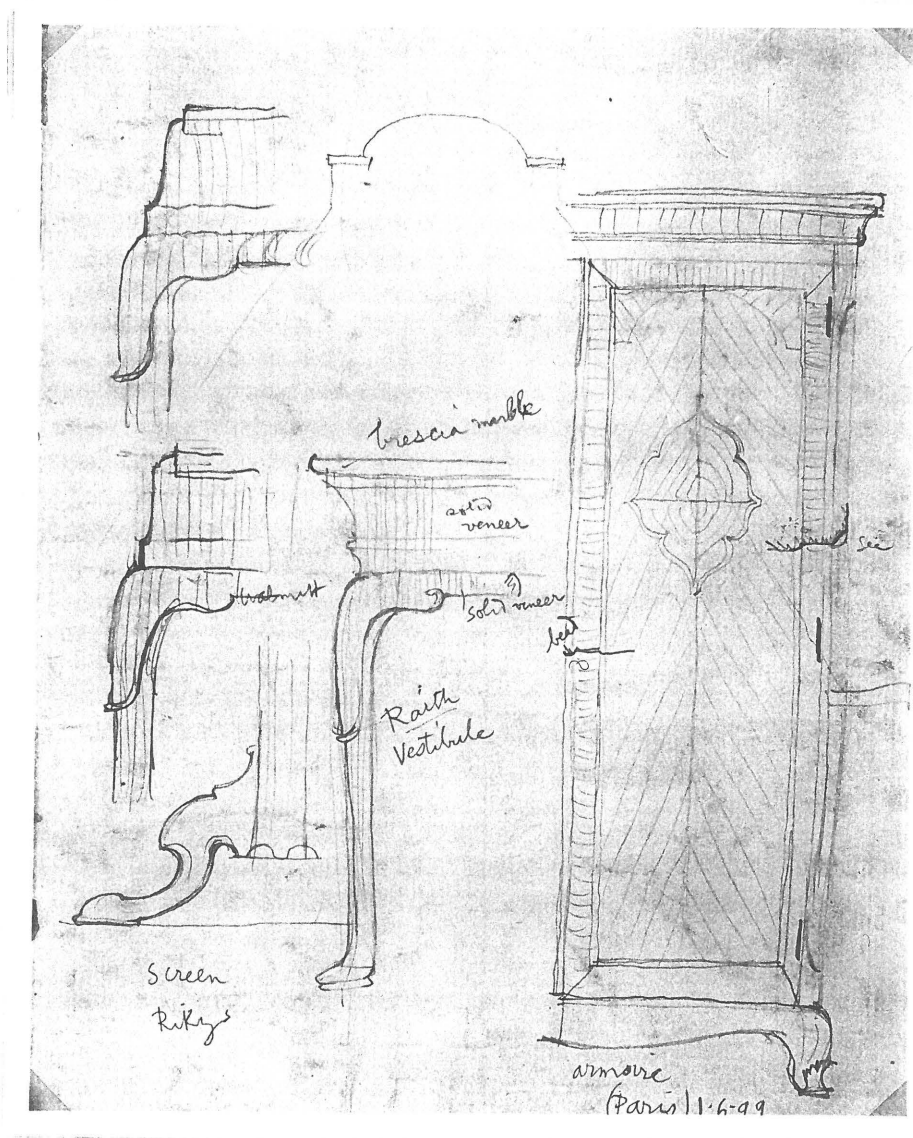 brescia marble
solid
veneer
walnut
solid veneer
bead
Raith
Vestibule
Screen
armoire
(Paris) 1-6-99